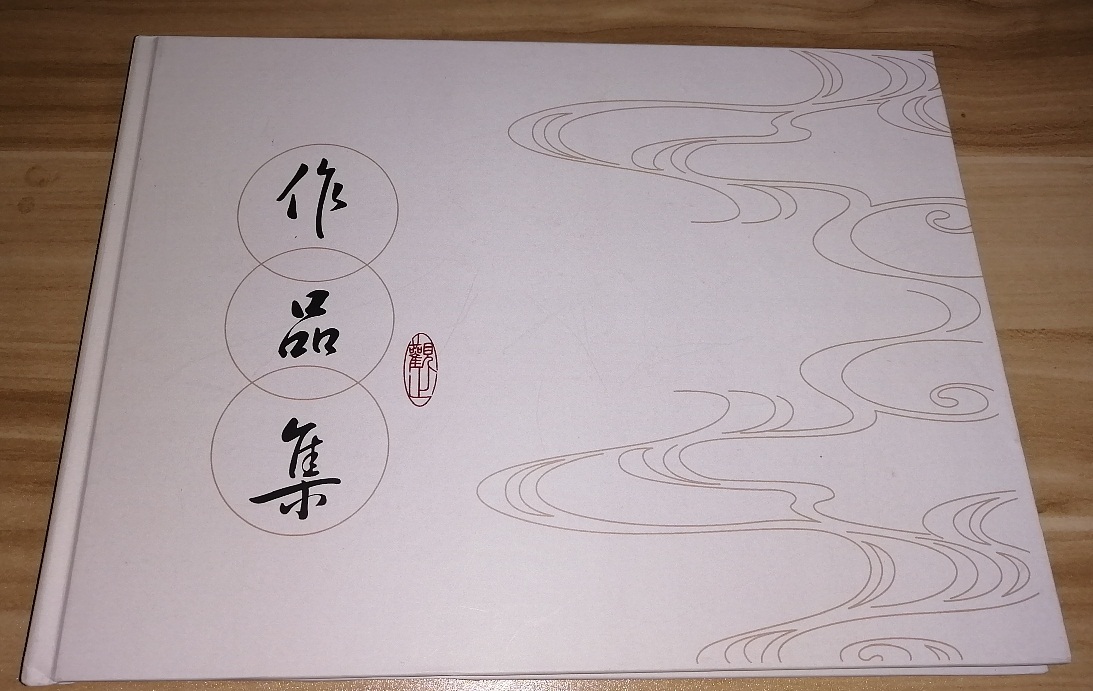 作品集
觀止